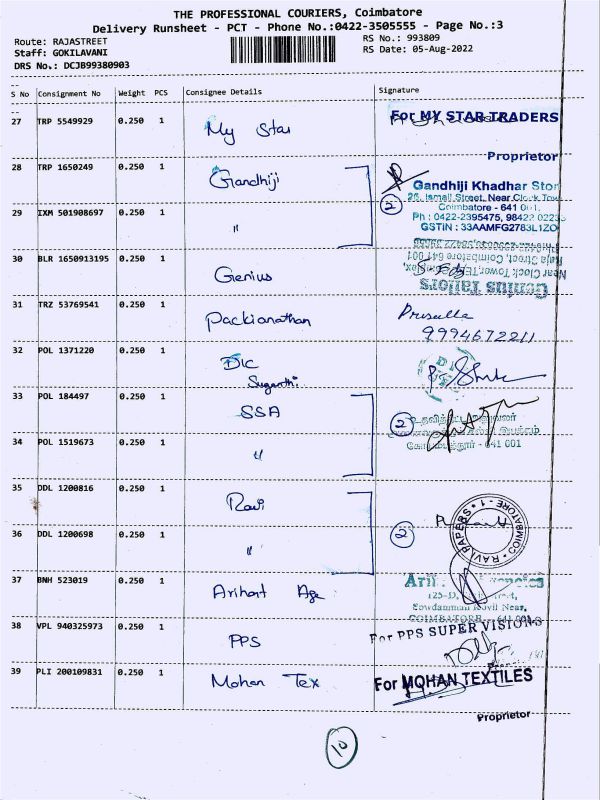 THE PROFESSIONAL COURIERS, Coimbatore
Delivery Runsheet - PCT - Phone No.:0422-3505555 - Page No.:3
Route: RAJASTREET
RS No.: 993809
Staff: GOKILAVANI
RS Date: 05-Aug-2022
DRS No.: DCJB99380903
S No Consignment No Weight PCS Consignee Details Signature
27 TRP 5549929 0.250 1 My Star For MY STAR TRADERS
Proprietor
28 TRP 1650249 0.250 1 Gandhiji Gandhiji Khadhar Stor
26, Ismail Street, Near Clock Tow
29 IXM 501908697 0.250 1 " 2 Coimbatore - 641 001.
Ph : 0422-2395475, 98422 0223
GSTIN : 33AAMFG2783L1ZO
30 BLR 1650913195 0.250 1 Genius
Raja Street, Coimbatore 641 001
Near Clock Tower,
Genius Tailors
31 TRZ 53769541 0.250 1 Packianathan Priscilla
9994672211
32 POL 1371220 0.250 1 DIC
Suganthi
33 POL 184497 0.250 1 SSA 2
34 POL 1519673 0.250 1 " கோயமுத்தூர் - 641 001
35 DDL 1200816 0.250 1 Ravi
36 DDL 1200698 0.250 1 " 2 RAVI PAPERS COIMBATORE - 1
37 BNH 523019 0.250 1 Arihant Age
125-D,
Gowdamman Kovil Near,
COIMBATORE
38 VPL 940325973 0.250 1 PPS For PPS SUPER VISIONS
39 PLI 200109831 0.250 1 Mohan Tex For MOHAN TEXTILES
Proprietor
10